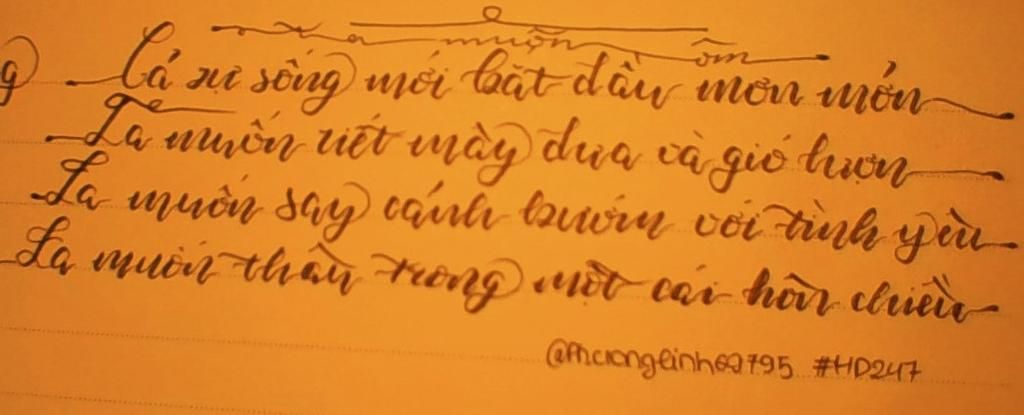 Ta muốn ôm
Cả sự sống mới bắt đầu mơn mởn
Ta muốn riết mây đưa và gió lượn
Ta muốn say cánh bướm với tình yêu
Ta muốn thâu trong một cái hôn nhiều
@Phuonglinh69795 #HD247